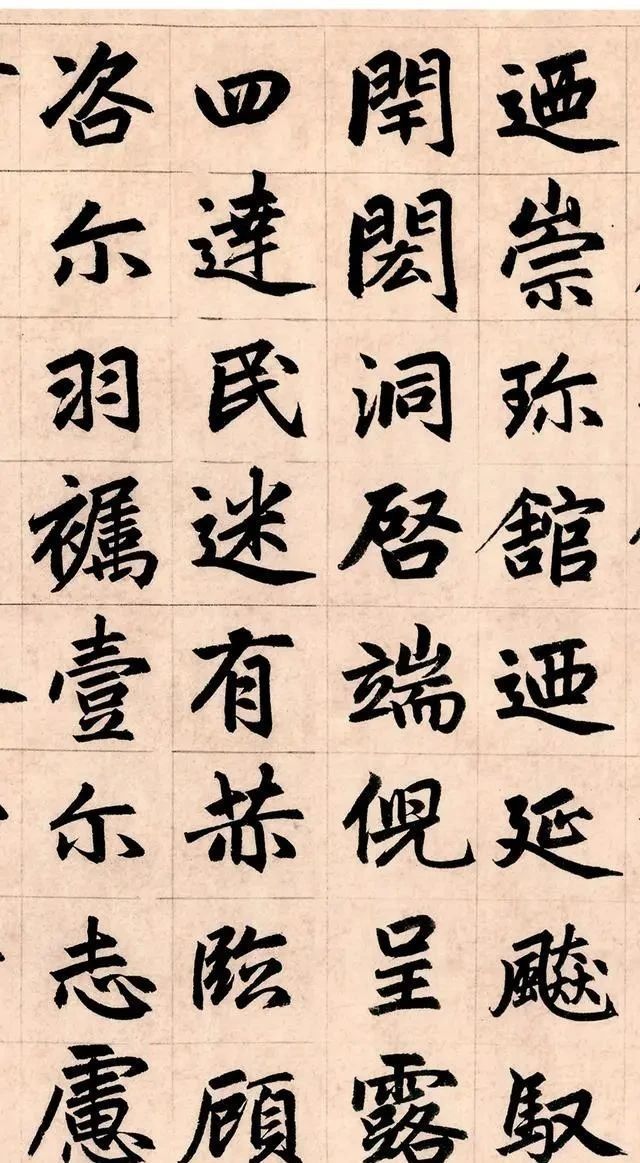 迺崇珎館迺延飈馭
閈閎洞啓端倪呈露
四達民迷有赫臨顧
咨尔羽壹尔志慮